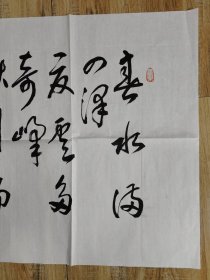 春水满
四泽
夏云多
奇峰
秋月